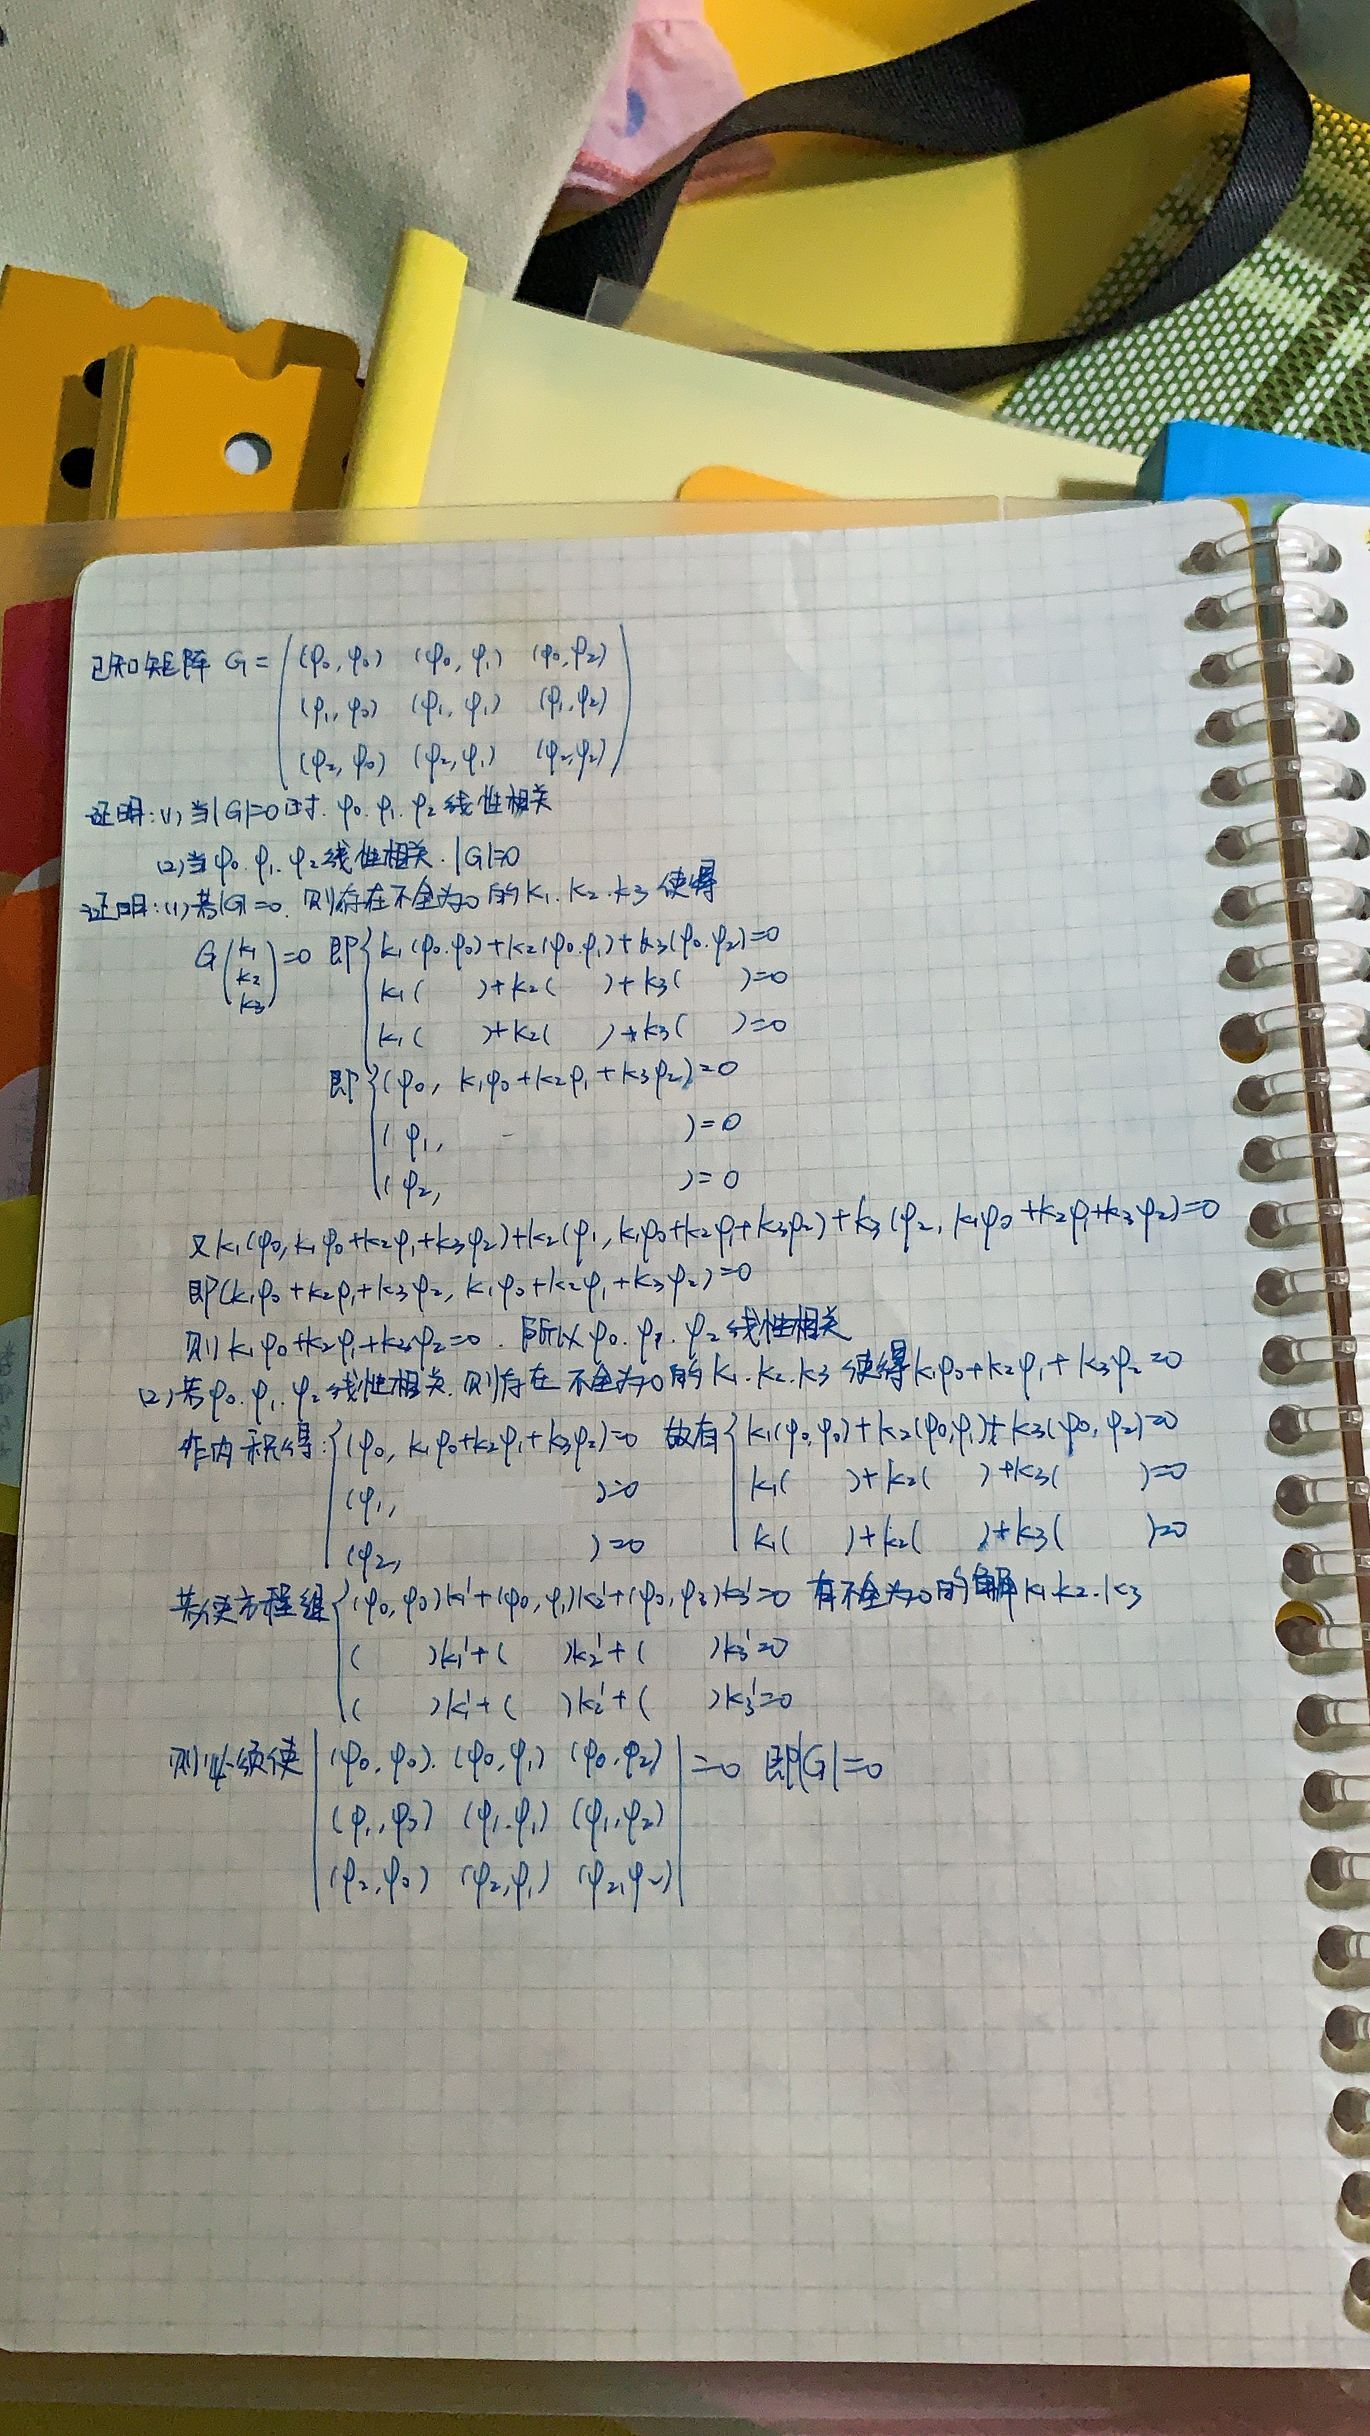 已知矩阵 G = ( (φ0, φ0) (φ0, φ1) (φ0, φ2)
(φ1, φ0) (φ1, φ1) (φ1, φ2)
(φ2, φ0) (φ2, φ1) (φ2, φ2) )
证明: (1) 当|G|=0时. φ0. φ1. φ2 线性相关
(2) 当φ0. φ1. φ2 线性相关. |G|=0
证明: (1) 若|G|=0. 则存在不全为0的k1. k2. k3 使得
G(k1 k2 k3)=0 即 { k1(φ0.φ0)+k2(φ0.φ1)+k3(φ0.φ2)=0
k1( )+k2( )+k3( )=0
k1( )+k2( )+k3( )=0
即 { (φ0, k1φ0+k2φ1+k3φ2)=0
(φ1, )=0
(φ2, )=0
又k1(φ0, k1φ0+k2φ1+k3φ2)+k2(φ1, k1φ0+k2φ1+k3φ2)+k3(φ2, k1φ0+k2φ1+k3φ2)=0
即(k1φ0+k2φ1+k3φ2, k1φ0+k2φ1+k3φ2)=0
则k1φ0+k2φ1+k3φ2=0. 所以φ0. φ1. φ2 线性相关
(2) 若φ0. φ1. φ2 线性相关. 则存在不全为0的k1. k2. k3 使得k1φ0+k2φ1+k3φ2=0
作内积得: { (φ0, k1φ0+k2φ1+k3φ2)=0 故有 { k1(φ0,φ0)+k2(φ0,φ1)+k3(φ0,φ2)=0
(φ1, )=0 k1( )+k2( )+k3( )=0
(φ2, )=0 k1( )+k2( )+k3( )=0
使方程组 { (φ0,φ0)k1'+(φ0,φ1)k2'+(φ0,φ2)k3'=0 有不全为0的解k1.k2.k3
( )k1'+( )k2'+( )k3'=0
( )k1'+( )k2'+( )k3'=0
则必须使 | (φ0,φ0). (φ0,φ1) (φ0,φ2) | =0 即|G|=0
(φ1,φ0) (φ1.φ1) (φ1,φ2)
(φ2,φ0) (φ2,φ1) (φ2,φ2)